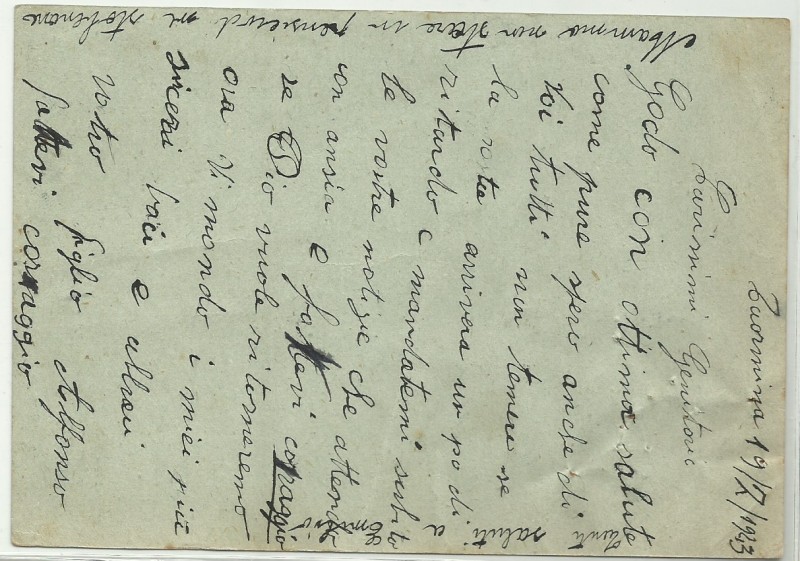 Taormina 19/7/1943
Carissimi Genitori
Godo con ottima salute
come pure spero anche di
Voi tutti non temere se
la vita arrivera un po di
ritardo e mandatemi subito
le vostre notizie che attendo
con ansia e fattevi coraggio
se Dio vuole ritorneremo
ora Vi mondo i miei più
sinceri baci e abbraci
vostro figlio Alfonso
fattevi coraggio
Mamma non stare in pensierd
saluti a